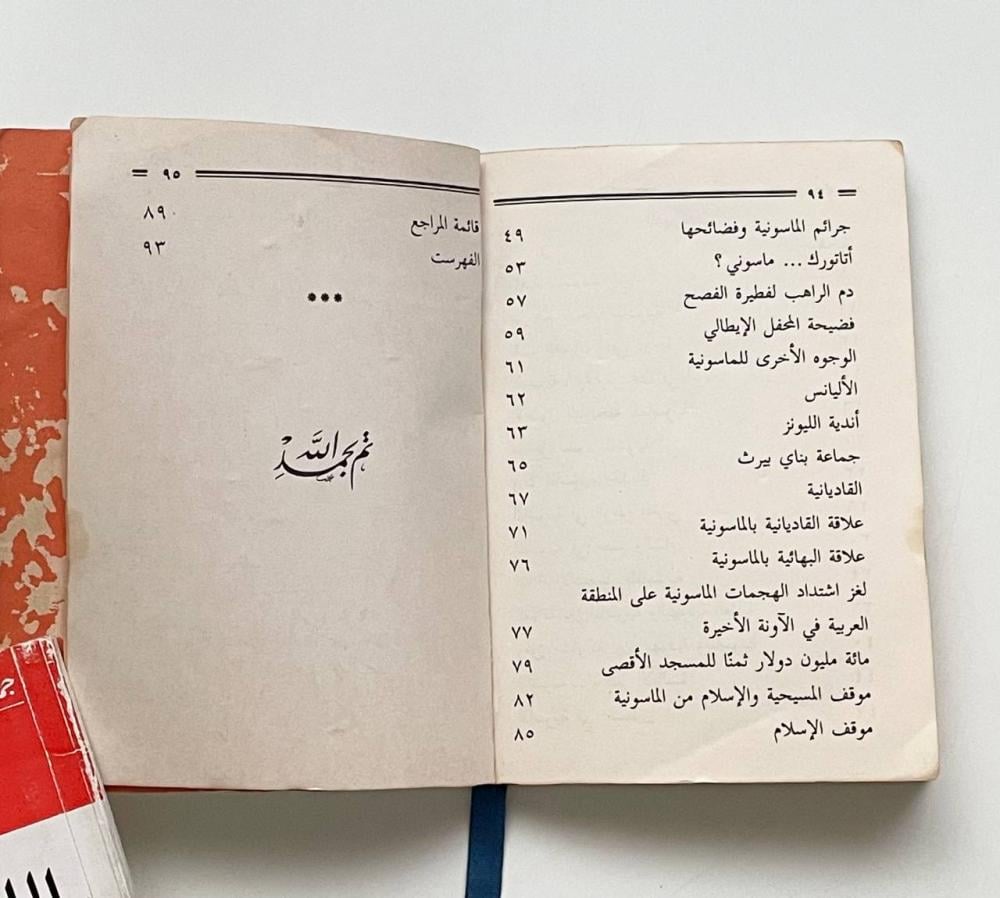 ٩٤
جرائم الماسونية وفضائحها ٤٩
أتاتورك ... ماسوني ؟ ٥٣
دم الراهب لفطيرة الفصح ٥٧
فضيحة المحفل الإيطالي ٥٩
الوجوه الأخرى للماسونية ٦١
الأليانس ٦٢
أندية الليونز ٦٣
جماعة بناي بيرث ٦٥
القاديانية ٦٧
علاقة القاديانية بالماسونية ٧١
علاقة البهائية بالماسونية ٧٦
لغز اشتداد الهجمات الماسونية على المنطقة
العربية في الآونة الأخيرة ٧٧
مائة مليون دولار ثمنًا للمسجد الأقصى ٧٩
موقف المسيحية والإسلام من الماسونية ٨٢
موقف الإسلام ٨٥
٩٥
قائمة المراجع ٨٩
الفهرست ٩٣
***
تم بحمد الله